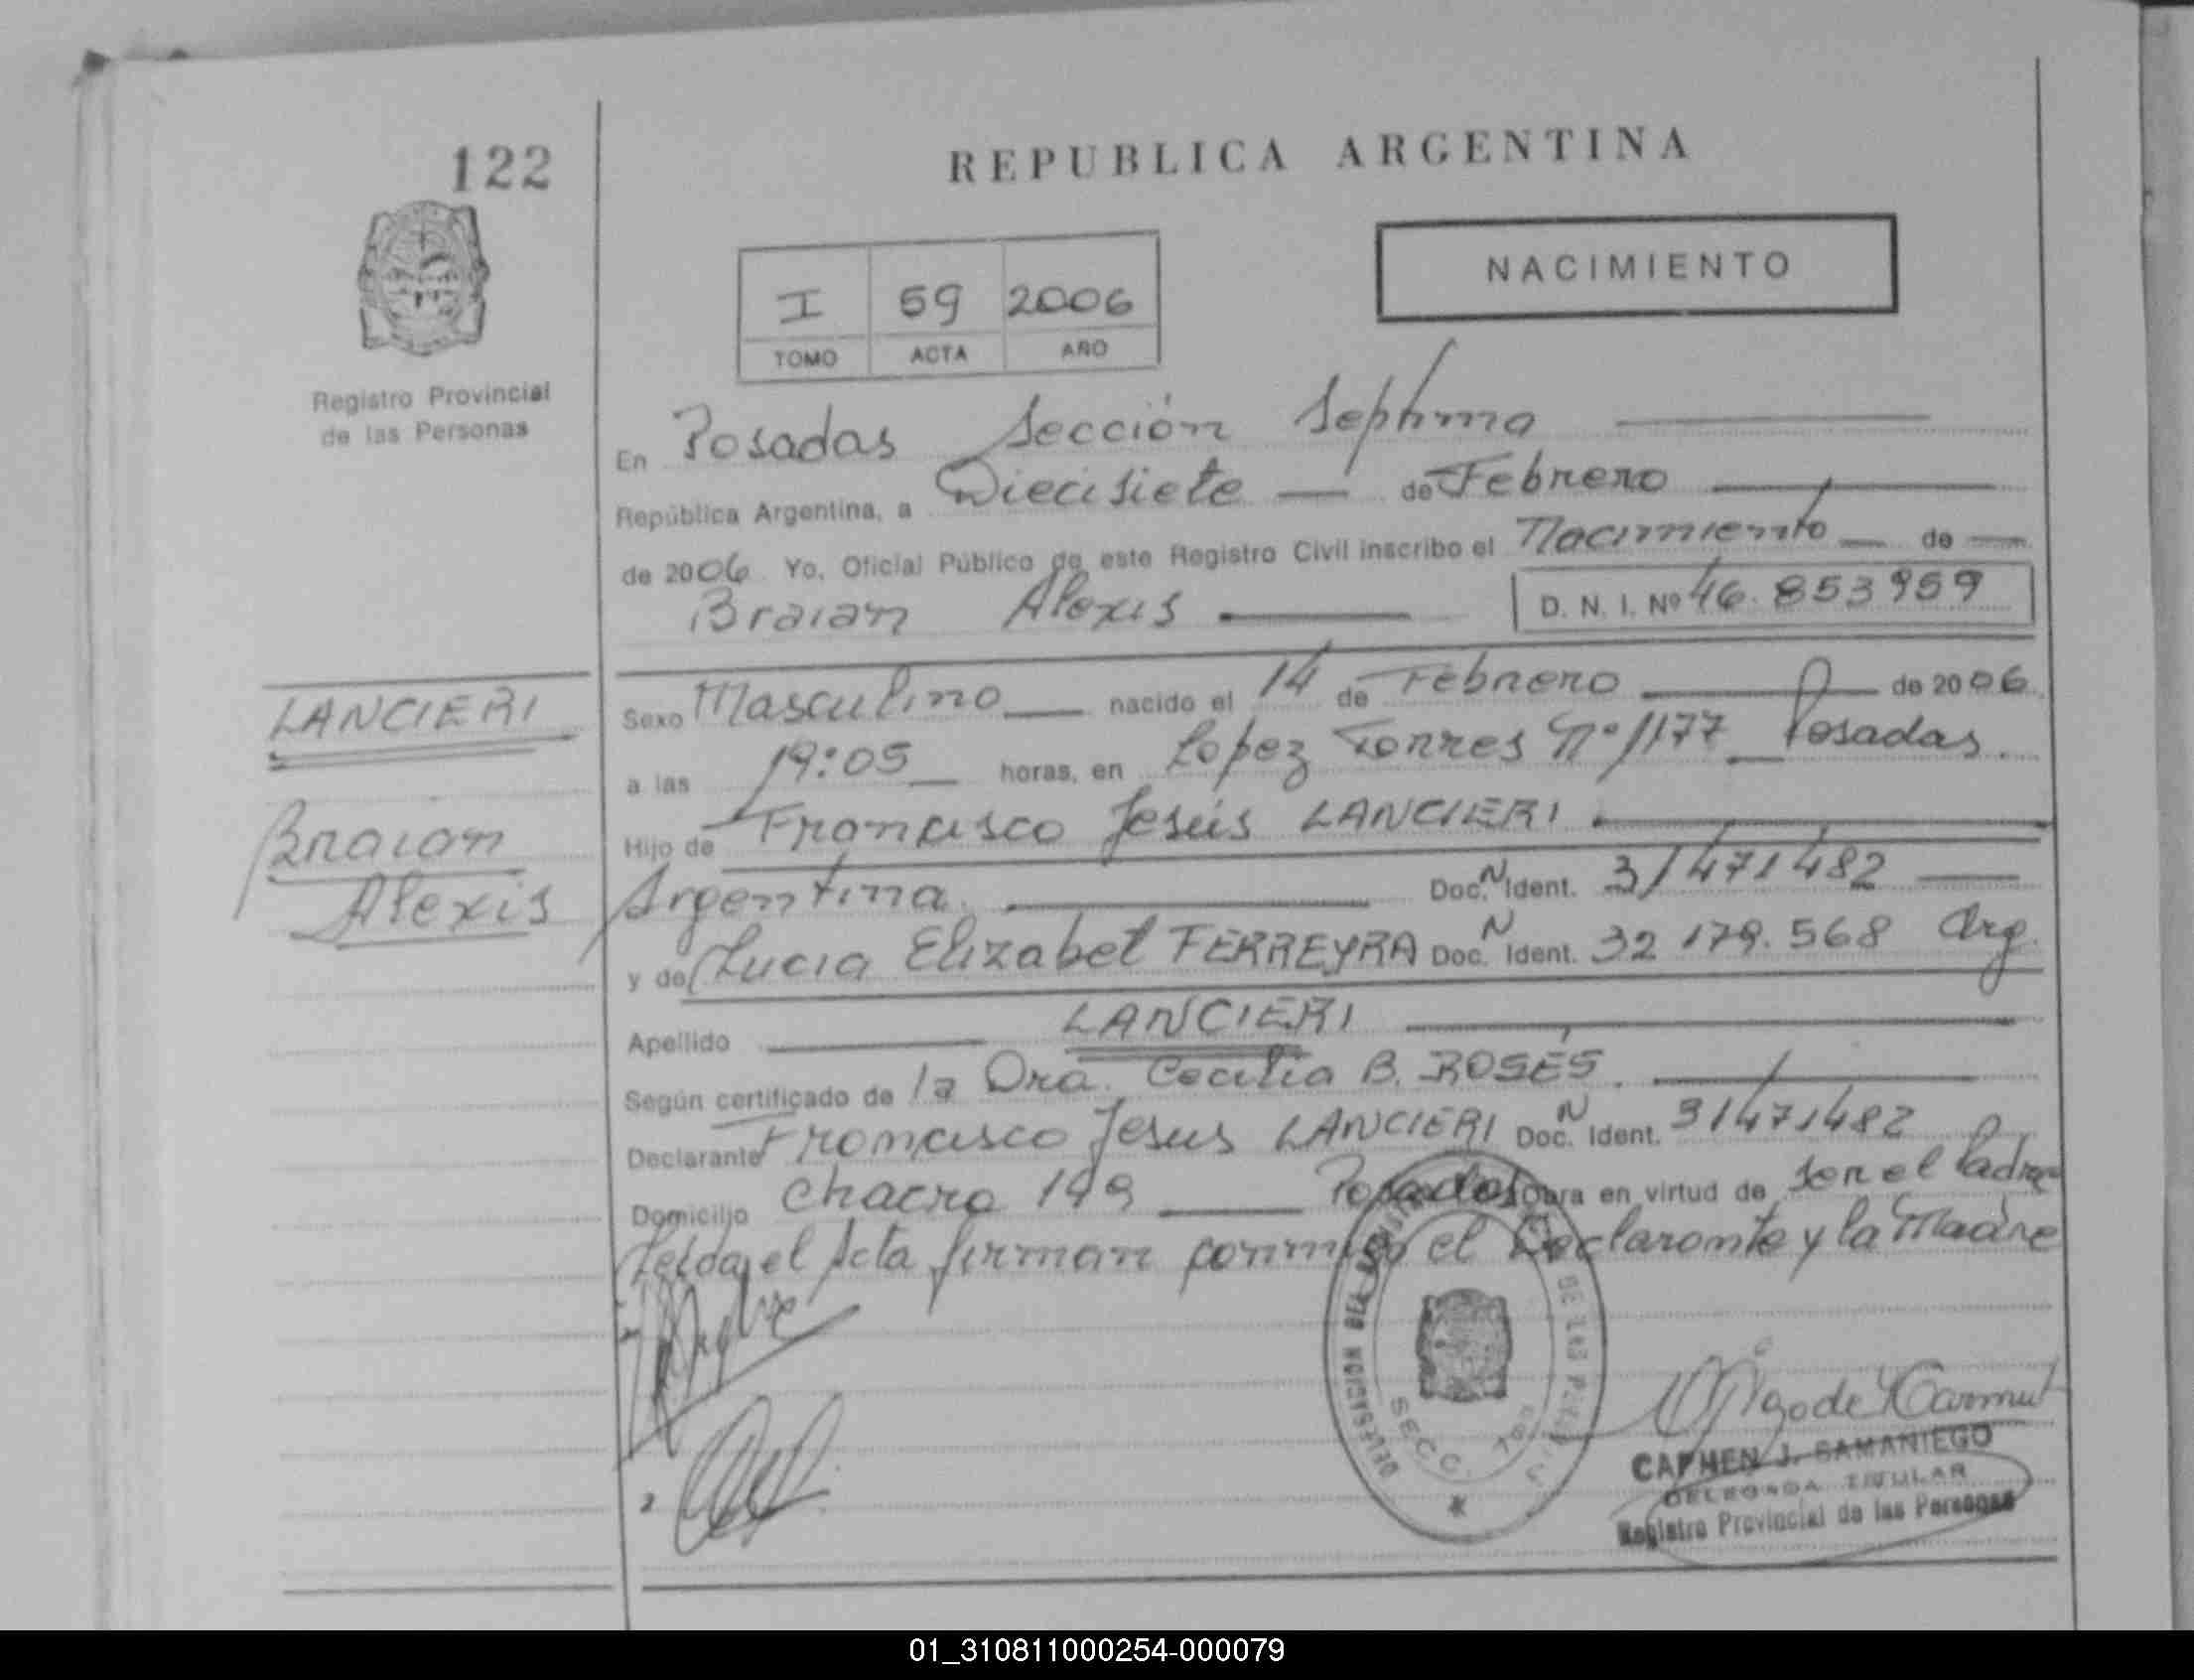 122
REPUBLICA ARGENTINA
NACIMIENTO
I 59 2006
TOMO ACTA AÑO
Registro Provincial
de las Personas
En Posadas Sección Septima
República Argentina, a Diecisiete de Febrero
de 2006 Yo, Oficial Público de este Registro Civil inscribo el Nacimiento de
Braian Alexis D. N. I. Nº 46.853959
LANCIERI
Braian
Alexis
Sexo Masculino nacido el 14 de Febrero de 2006
a las 19:05 horas, en Lopez Torres Nº 1177 Posadas.
Hijo de Francisco Jesús LANCIERI
Argentina. Doc. N Ident. 31471482
y de Lucia Elizabet FERREYRA Doc. N Ident. 32 179.568 Arg.
Apellido LANCIERI
Según certificado de la Dra. Cecilia B. ROSÉS.
Declarante Francisco Jesus LANCIERI Doc. N Ident. 31471482
Domicilio Chacra 149 Posadas Obra en virtud de ser el Padre
Leida el Acta firman conmigo el Declarante y la Madre
DELEGACION DEL DE LAS
SECC. 7
CARMEN J. SAMANIEGO
DELEGADA TITULAR
Registro Provincial de las Personas
01_310811000254-000079